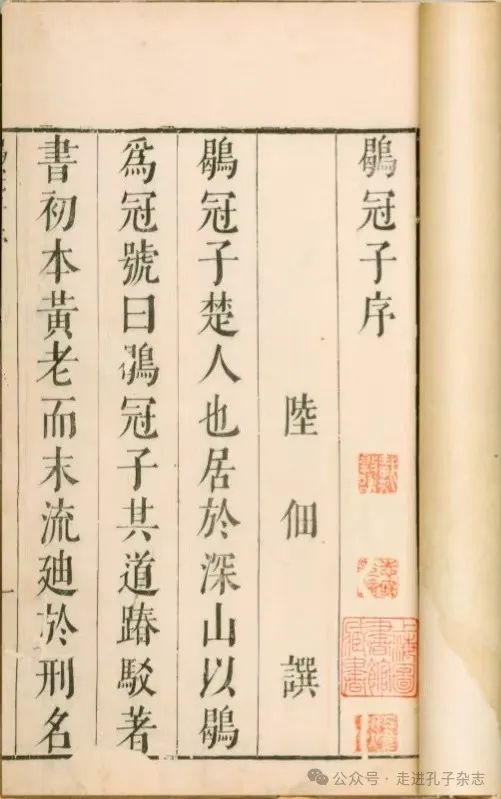 鶡冠子序
陸佃譔
鶡冠子楚人也居於深山以鶡
爲冠號曰鶡冠子其道踳駁著
書初本黃老而末流廸於刑名
一
上海圖書館藏書
公众号 · 走进孔子杂志